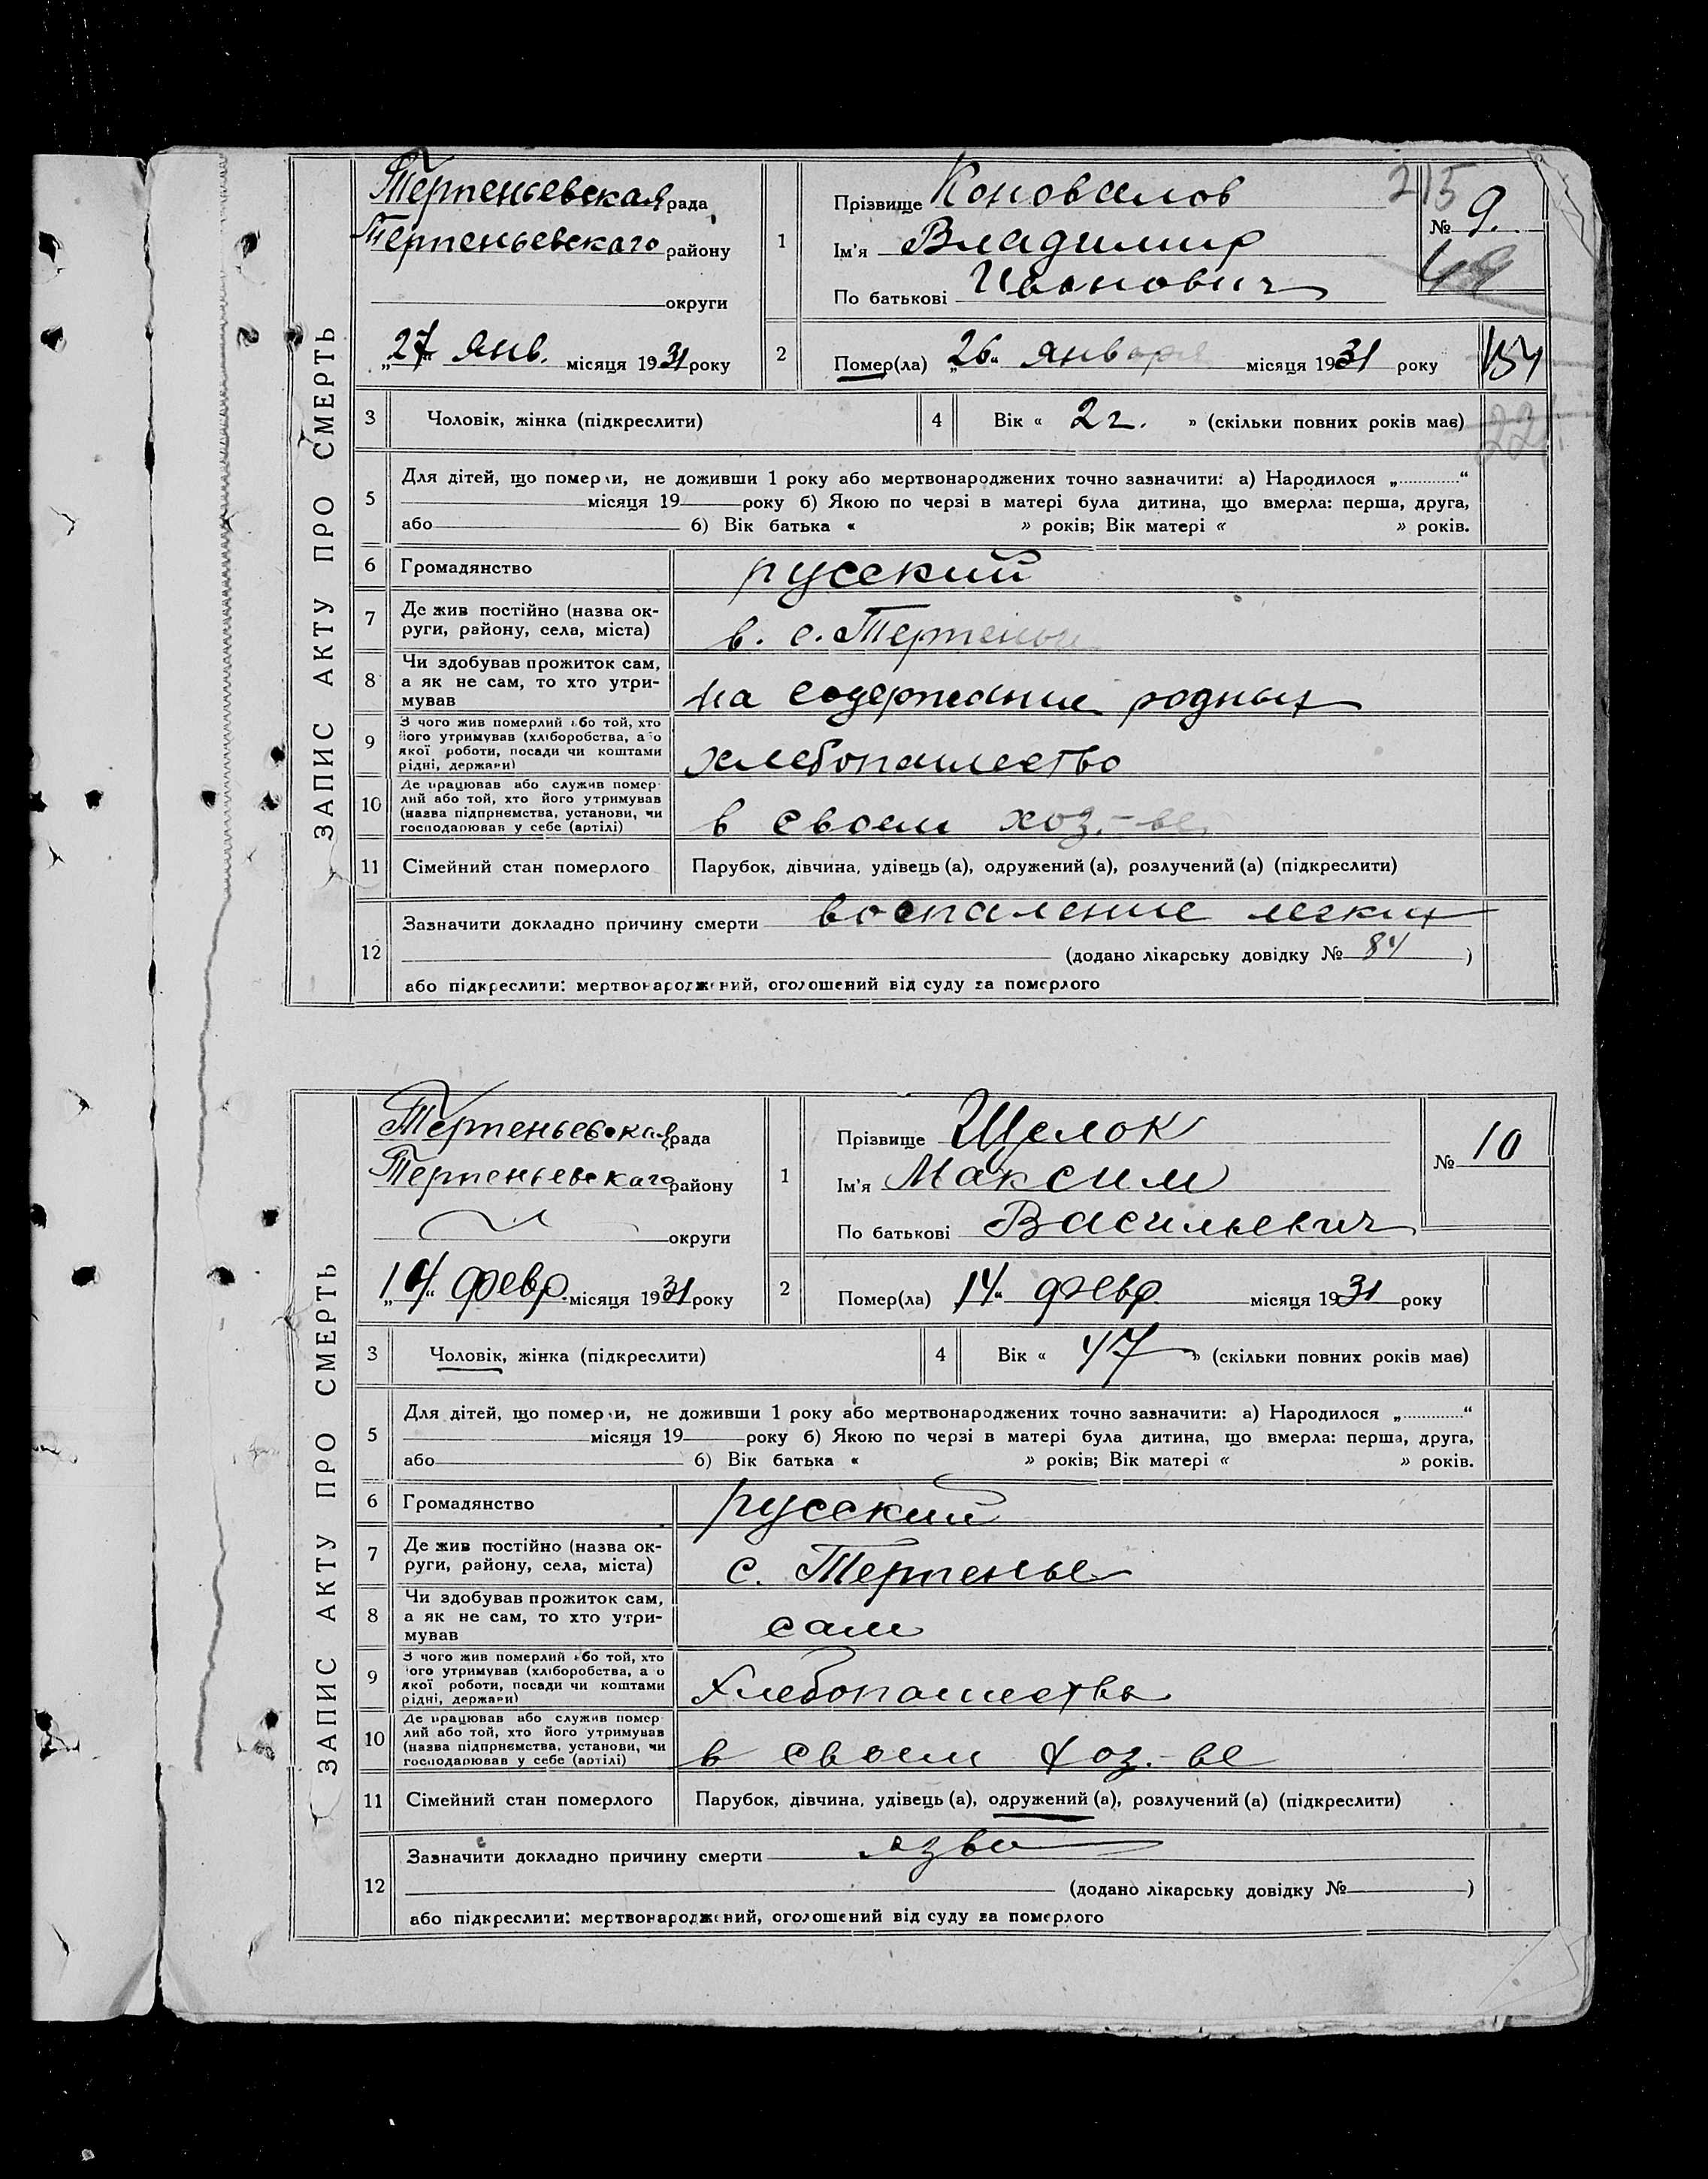 ЗАПИС АКТУ ПРО СМЕРТЬ
Терпеньевская рада
Терпеньевскаго району
округи
„27“ янв. місяця 1931 року
1
Прізвище Коновалов
Ім'я Владимир
По батькові Иванович
215
№ 9.
49
2
Помер(ла) „26“ января місяця 1931 року
154
3 Чоловік, жінка (підкреслити)
4 Вік « 2 г. » (скільки повних років має)
22
5 Для дітей, що померли, не доживши 1 року або мертвонароджених точно зазначити: а) Народилося „............“
місяця 19 року б) Якою по черзі в матері була дитина, що вмерла: перша, друга,
або 6) Вік батька « » років; Вік матері « » років.
6 Громадянство русский
7 Де жив постійно (назва ок-
руги, району, села, міста)
в. с. Терпенье
8 Чи здобував прожиток сам,
а як не сам, то хто утри-
мував
на содержание родных
9 З чого жив померлий або той, хто
його утримував (хліборобства, або
якої роботи, посади чи коштами
рідні, держави)
хлебопашество
10 Де працював або служив помер-
лий або той, хто його утримував
(назва підприємства, установи, чи
господарював у себе (артілі)
в своем хоз.-ве
11 Сімейний стан померлого Парубок, дівчина, удівець (а), одружений (а), розлучений (а) (підкреслити)
12 Зазначити докладно причину смерти воспаление легких
(додано лікарську довідку № 84 )
або підкреслити: мертвонароджений, оголошений від суду за померлого
ЗАПИС АКТУ ПРО СМЕРТЬ
Терпеньевская рада
Терпеньевскаго району
округи
„14“ февр. місяця 1931 року
1
Прізвище Щелок
Ім'я Максим
По батькові Васильевич
№ 10
2
Помер(ла) „14“ февр. місяця 1931 року
3 Чоловік, жінка (підкреслити)
4 Вік « 47 » (скільки повних років має)
5 Для дітей, що померли, не доживши 1 року або мертвонароджених точно зазначити: а) Народилося „............“
місяця 19 року б) Якою по черзі в матері була дитина, що вмерла: перша, друга,
або 6) Вік батька « » років; Вік матері « » років.
6 Громадянство русский
7 Де жив постійно (назва ок-
руги, району, села, міста)
с. Терпенье
8 Чи здобував прожиток сам,
а як не сам, то хто утри-
мував
сам
9 З чого жив померлий або той, хто
його утримував (хліборобства, або
якої роботи, посади чи коштами
рідні, держави)
хлебопашество
10 Де працював або служив помер-
лий або той, хто його утримував
(назва підприємства, установи, чи
господарював у себе (артілі)
в своем хоз.-ве
11 Сімейний стан померлого Парубок, дівчина, удівець (а), одружений (а), розлучений (а) (підкреслити)
12 Зазначити докладно причину смерти язва
(додано лікарську довідку № )
або підкреслити: мертвонароджений, оголошений від суду за померлого